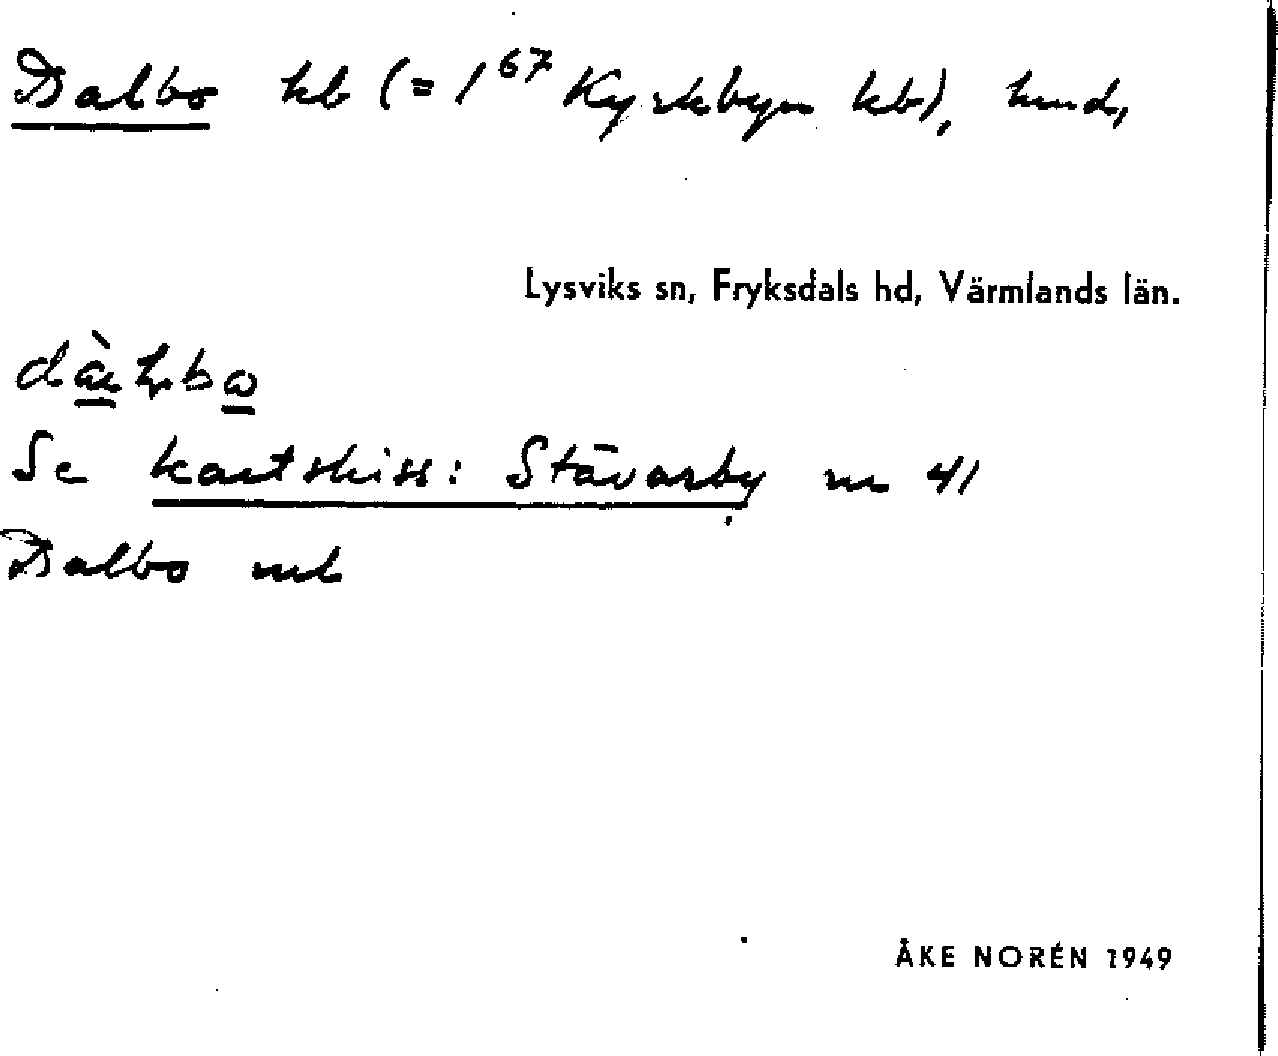 Dalbo kb (= 1⁶⁷ Kyrkbyn kb), hmd,
Lysviks sn, Fryksdals hd, Värmlands län.
Se kartskiss: Stāvarby nr 41
Dalbo
ÅKE NORÉN 1949